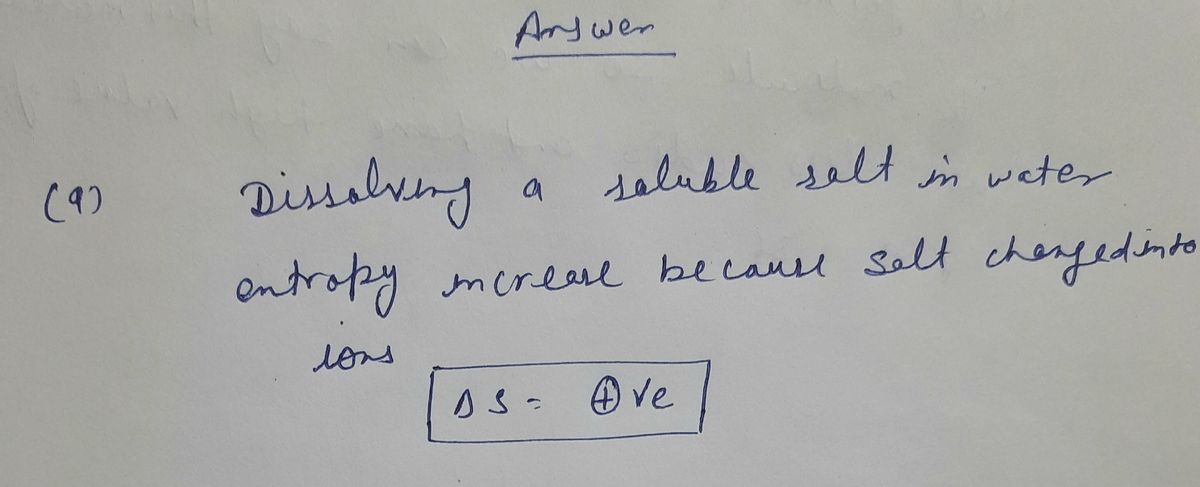 Answer
(9) Dissolving a soluble salt in water
entropy increase because salt changed into
ions
ΔS = ⊕ve